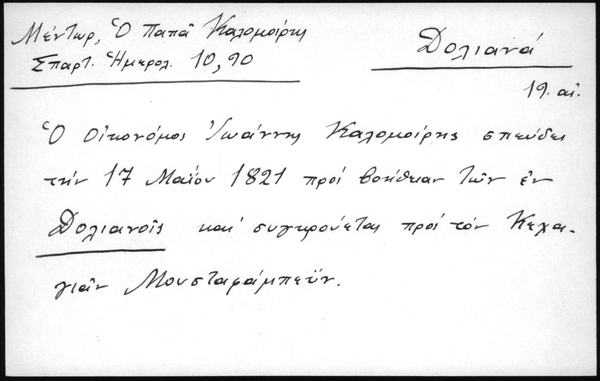 Μέντωρ, Ὁ Παπᾶ Καλομοίρης
Σπαρτ. Ἡμερολ. 10, 90
Δολιανά
19. αἰ.
Ὁ Οἰκονόμος Ἰωάννης Καλομοίρης σπεύδει
τήν 17 Μαΐου 1821 πρός βοήθειαν τῶν ἐν
Δολιανοῖς καί συγκρούεται πρός τόν Κεχα-
γιᾶν Μουσταφάμπεϋν.